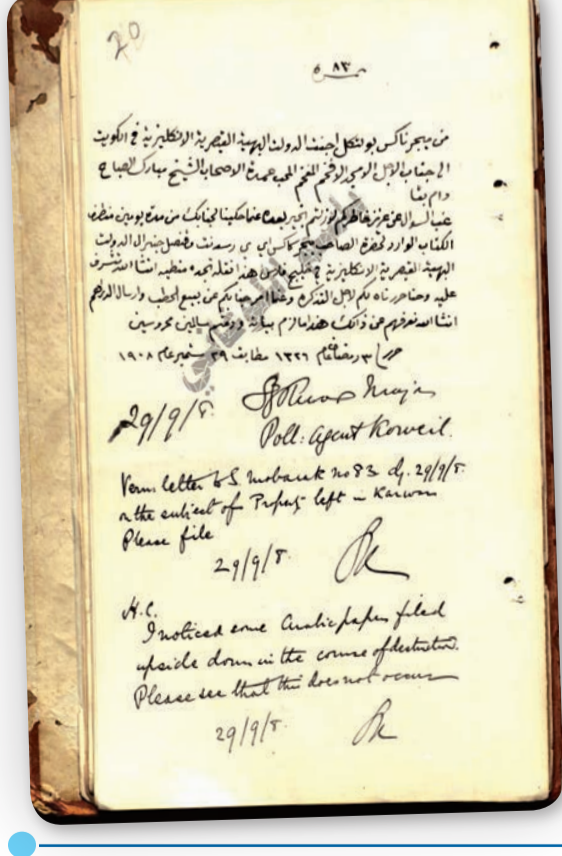 20
نمرة ٨٣
من ميجر ناكس بولتكل اجنت الدولت البهية القيصرية الانكليزية في الكويت
الى جناب الاجل الامجد الافخم المفخم المحب عمدة الاصحاب الشيخ مبارك الصباح
دام بقا
غب السوال عن عزيز خاطركم لوزلتم بخير بعده عنا حكينا لجنابك من مدة يومين
الكتاب الوارد لحضرة الصاحب ميجر كاكس اي رسدنت وقنصل جنرال الدولت
البهية القيصرية الانكليزية في خليج فارس هذا نقله تجده منطيه انشا الله تتشرف
عليه وحنا حررناه لكم لاجل التذكرة وعنا امر جنابكم عن بيع الحطب وارسال الدراهم
انشا الله نعرفهم عن ذالك هذا ما لزم بيانه ودمتم سالمين محروسين
حرر ٣ رمضان عام ١٣٢٦ مطابق ٢٩ ستمبر عام ١٩٠٨
29/9/8. Major
Poll: Agent Koweit.
Vern. letter to S. Mobarak no 83 dj. 29/9/8.
on the subject of Property left in Karwan
Please file
29/9/8.
H.C.
I noticed some Arabic papers filed
upside down in the course of destruction.
Please see that this does not occur
29/9/8.